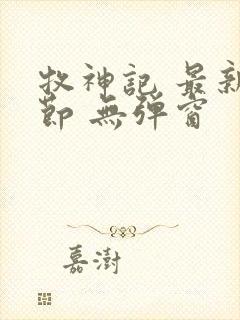 牧神記 最新
節 無彈窗
嘉澍